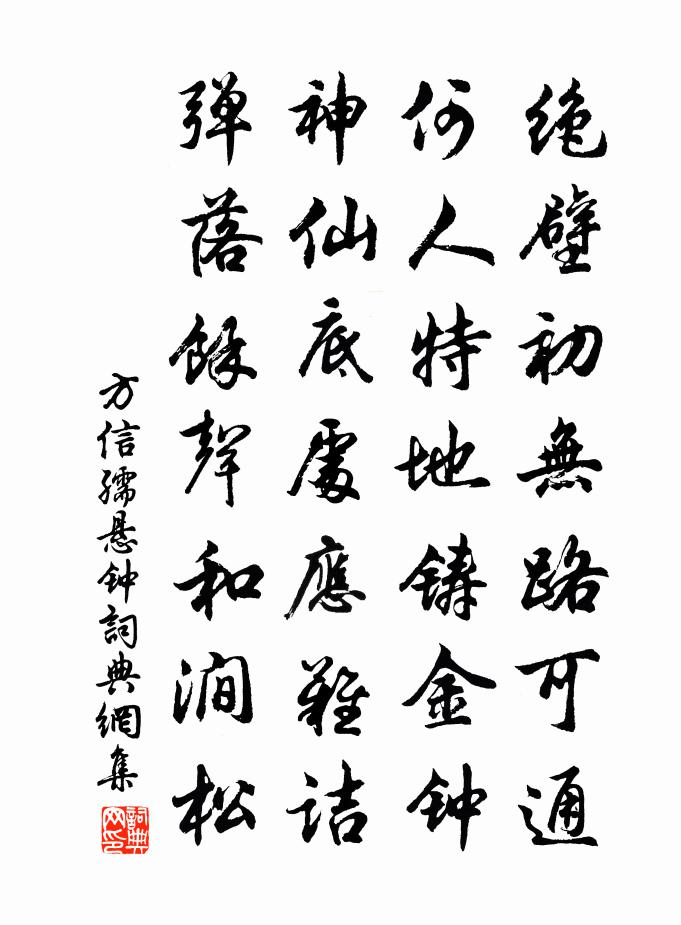 绝壁初無路可通
何人特地铸金钟
神仙底處應難诘
弹落餘聲和涧松
方信孺悬钟詞典網集
詞典网印